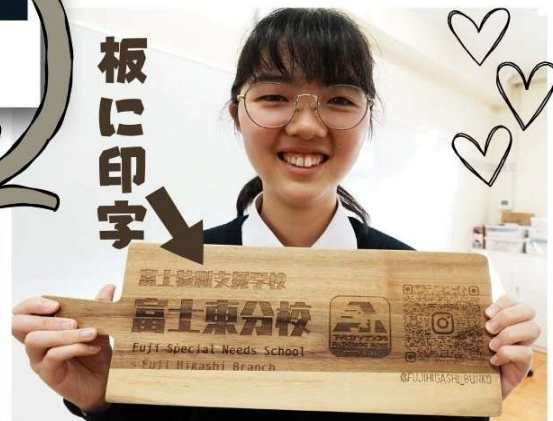 板に印字
富士特別支援学校
富士東分校
Fuji Special Needs School
- Fuji Higashi Branch
@FUJIHIGASHI_BUNKO